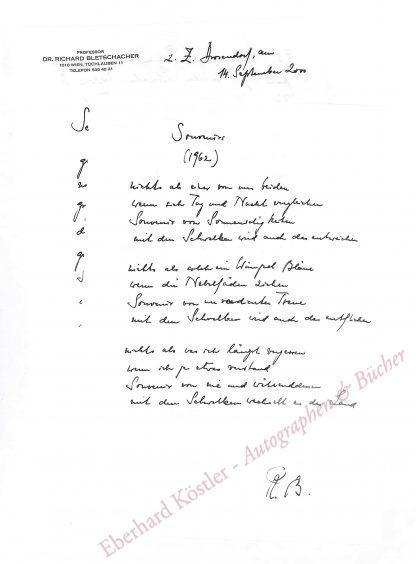 PROFESSOR
DR. RICHARD BLETSCHACHER
1010 WIEN, TUCHLAUBEN 11
TELEFON 535 45 21
z. Z. Drosendorf, am
14. September 2000
Souvenirs
(1962)
nichts als einer von uns beiden
wenn sich Tag und Nacht vergleichen
Souvenir von
mit den Schwalben wird auch das entweichen
nichts als ein Wimpel Bläue
wenn die Nebelfäden ziehen
Souvenir von Treue
mit den Schwalben wird auch das entfliehen
nichts als was ich längst vergessen
wenn ich je etwas verstand
Souvenir von nie und
mit den Schwalben wechselt es das Land
R. B.
Eberhard Köstler - Autographen & Bücher